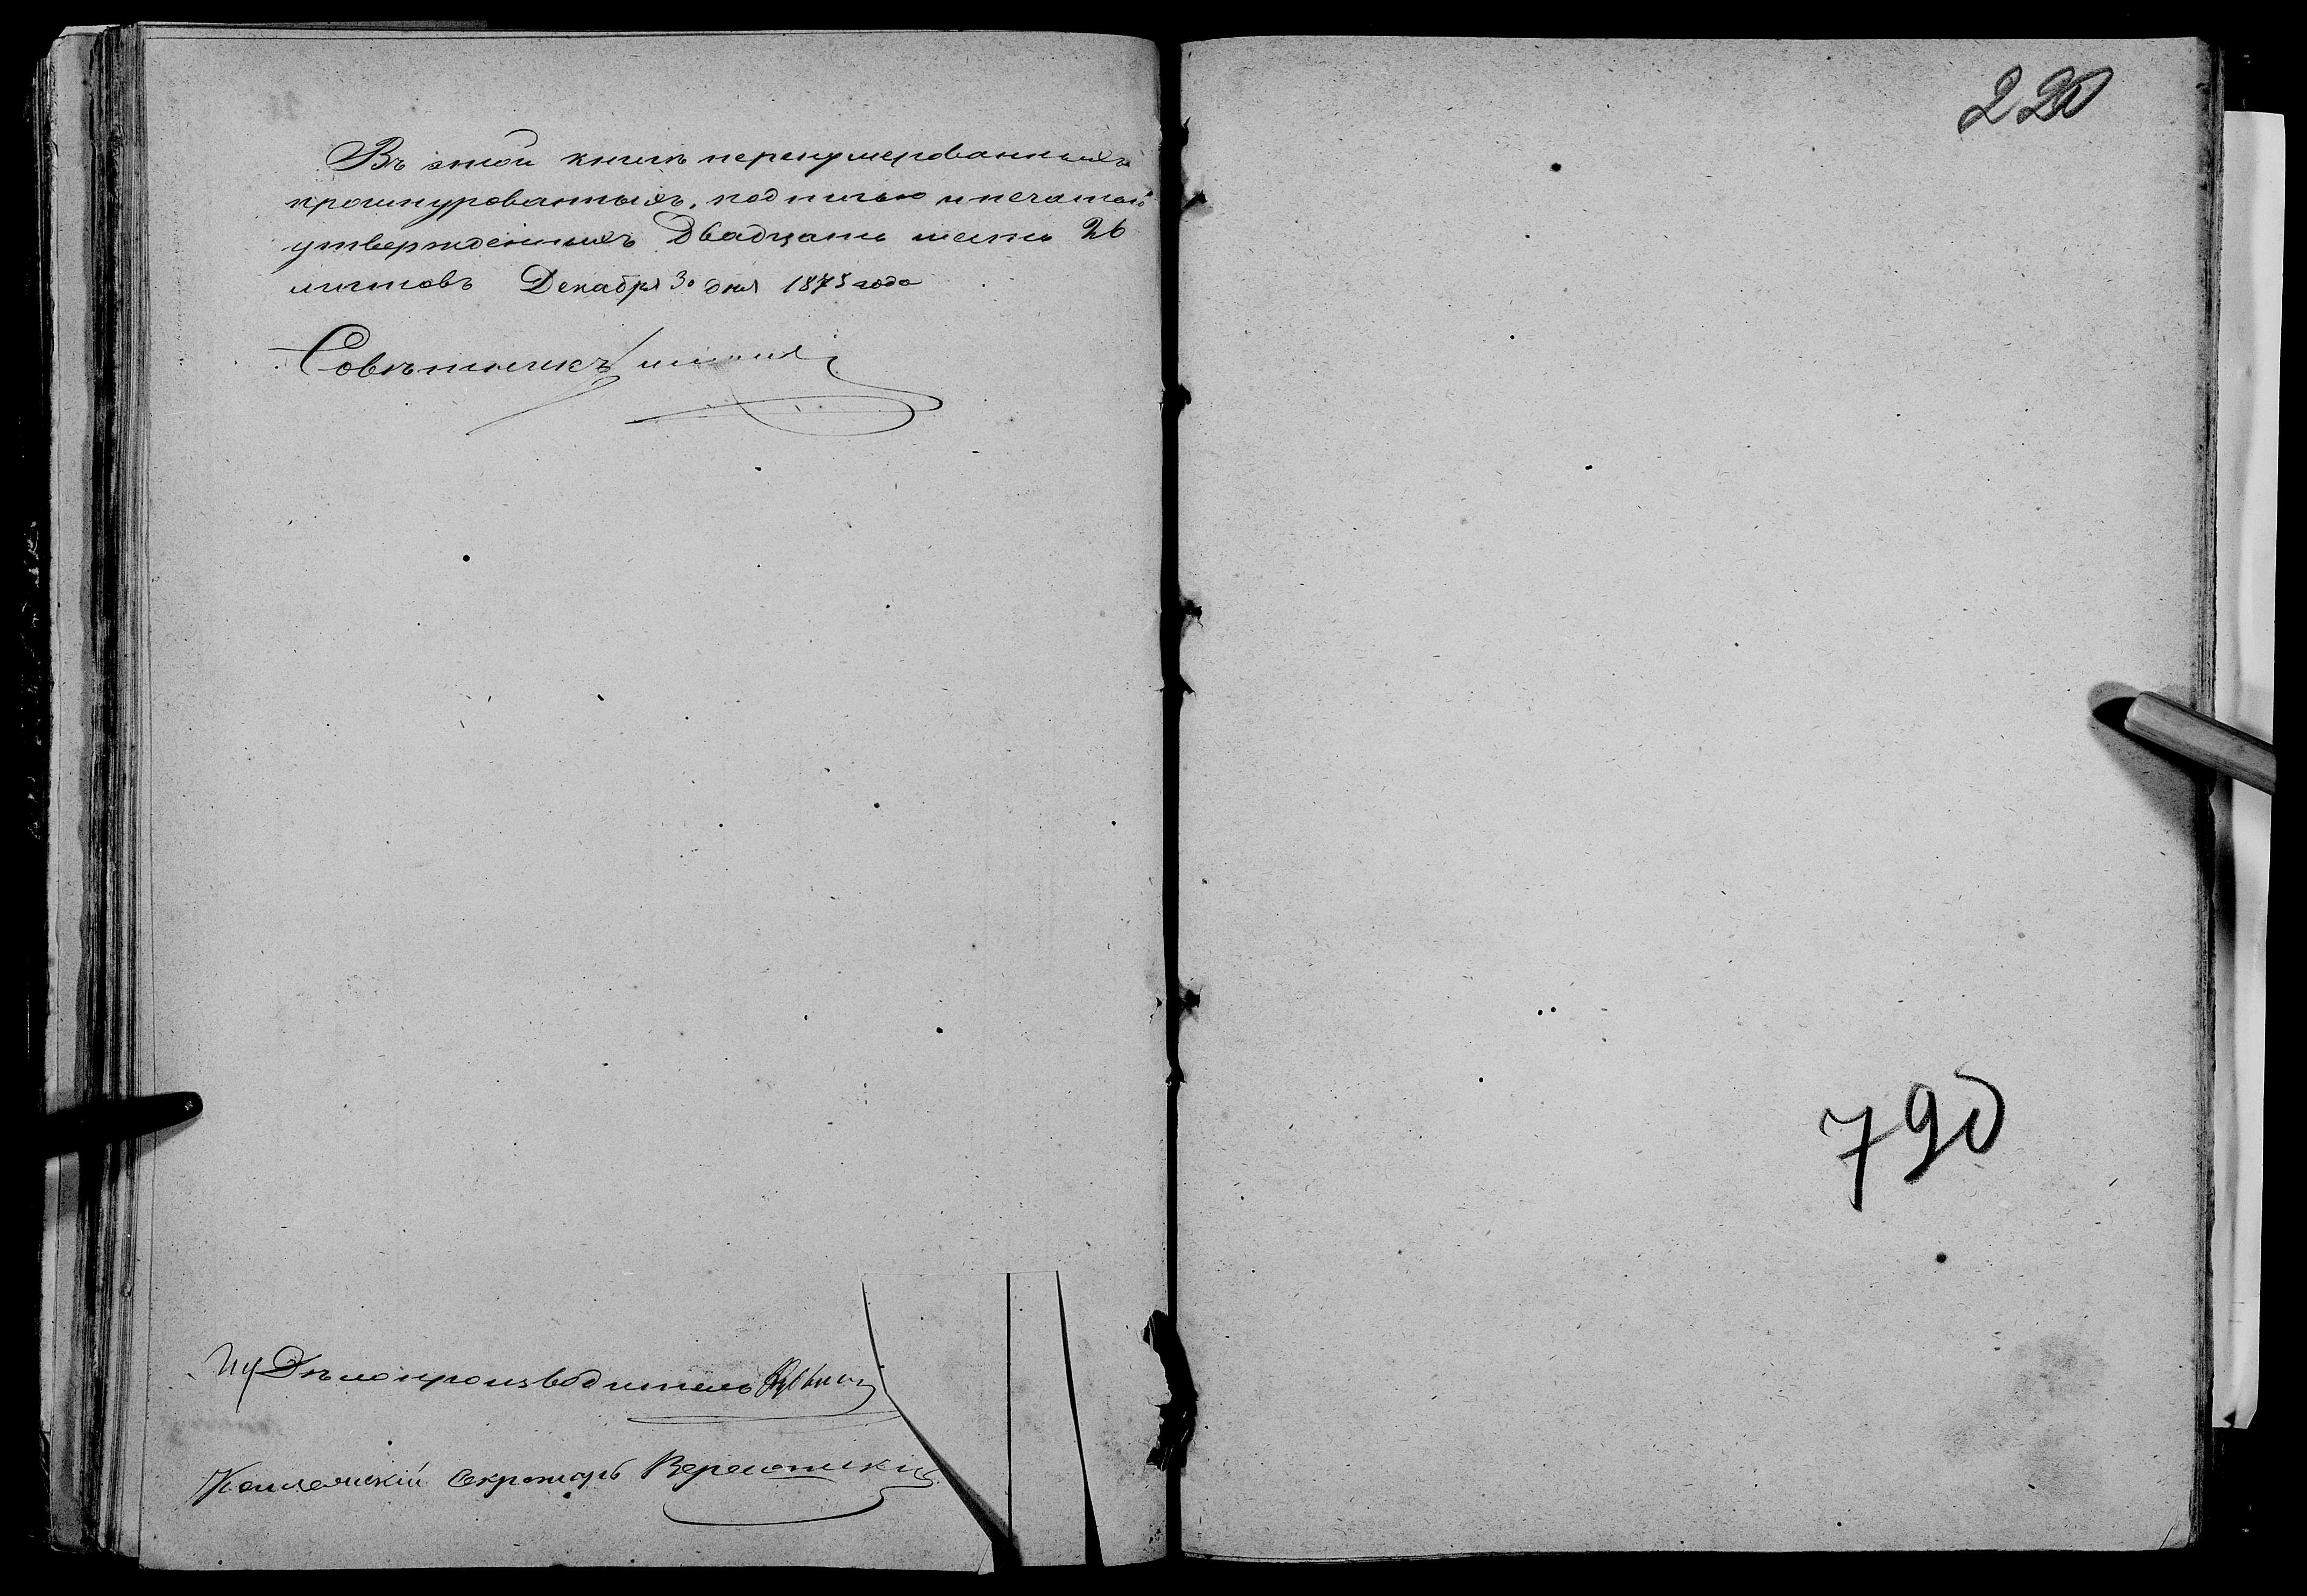 Въ этой книгѣ перенумерованныхъ
прошнурованныхъ, подписью и печатью
утвержденныхъ Двадцать шесть 26
листовъ Декабря 30 дня 1875 года
Совѣтникъ
Дѣлопроизводитель
Коллежскій Секретарь
220
790